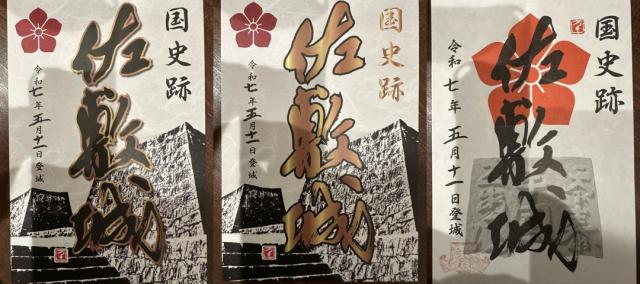 国史跡
佐敷城
令和七年五月十一日登城
国史跡
佐敷城
令和七年五月十一日登城
国史跡
佐敷城
令和七年五月十一日登城